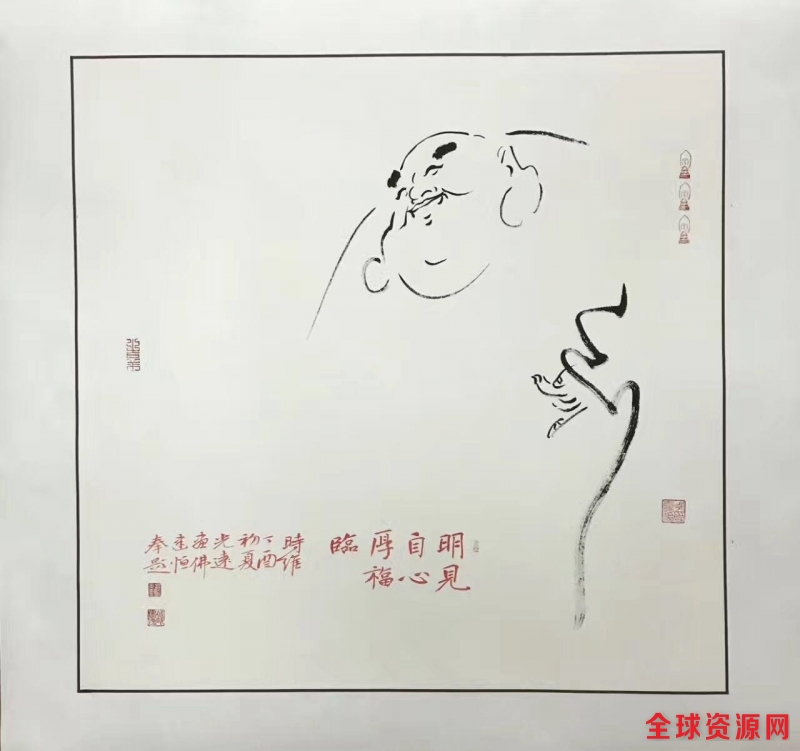 明見
自心
厚福
臨
時維
丁酉
初夏
光達
畫佛
恒
奉題
全球资源网